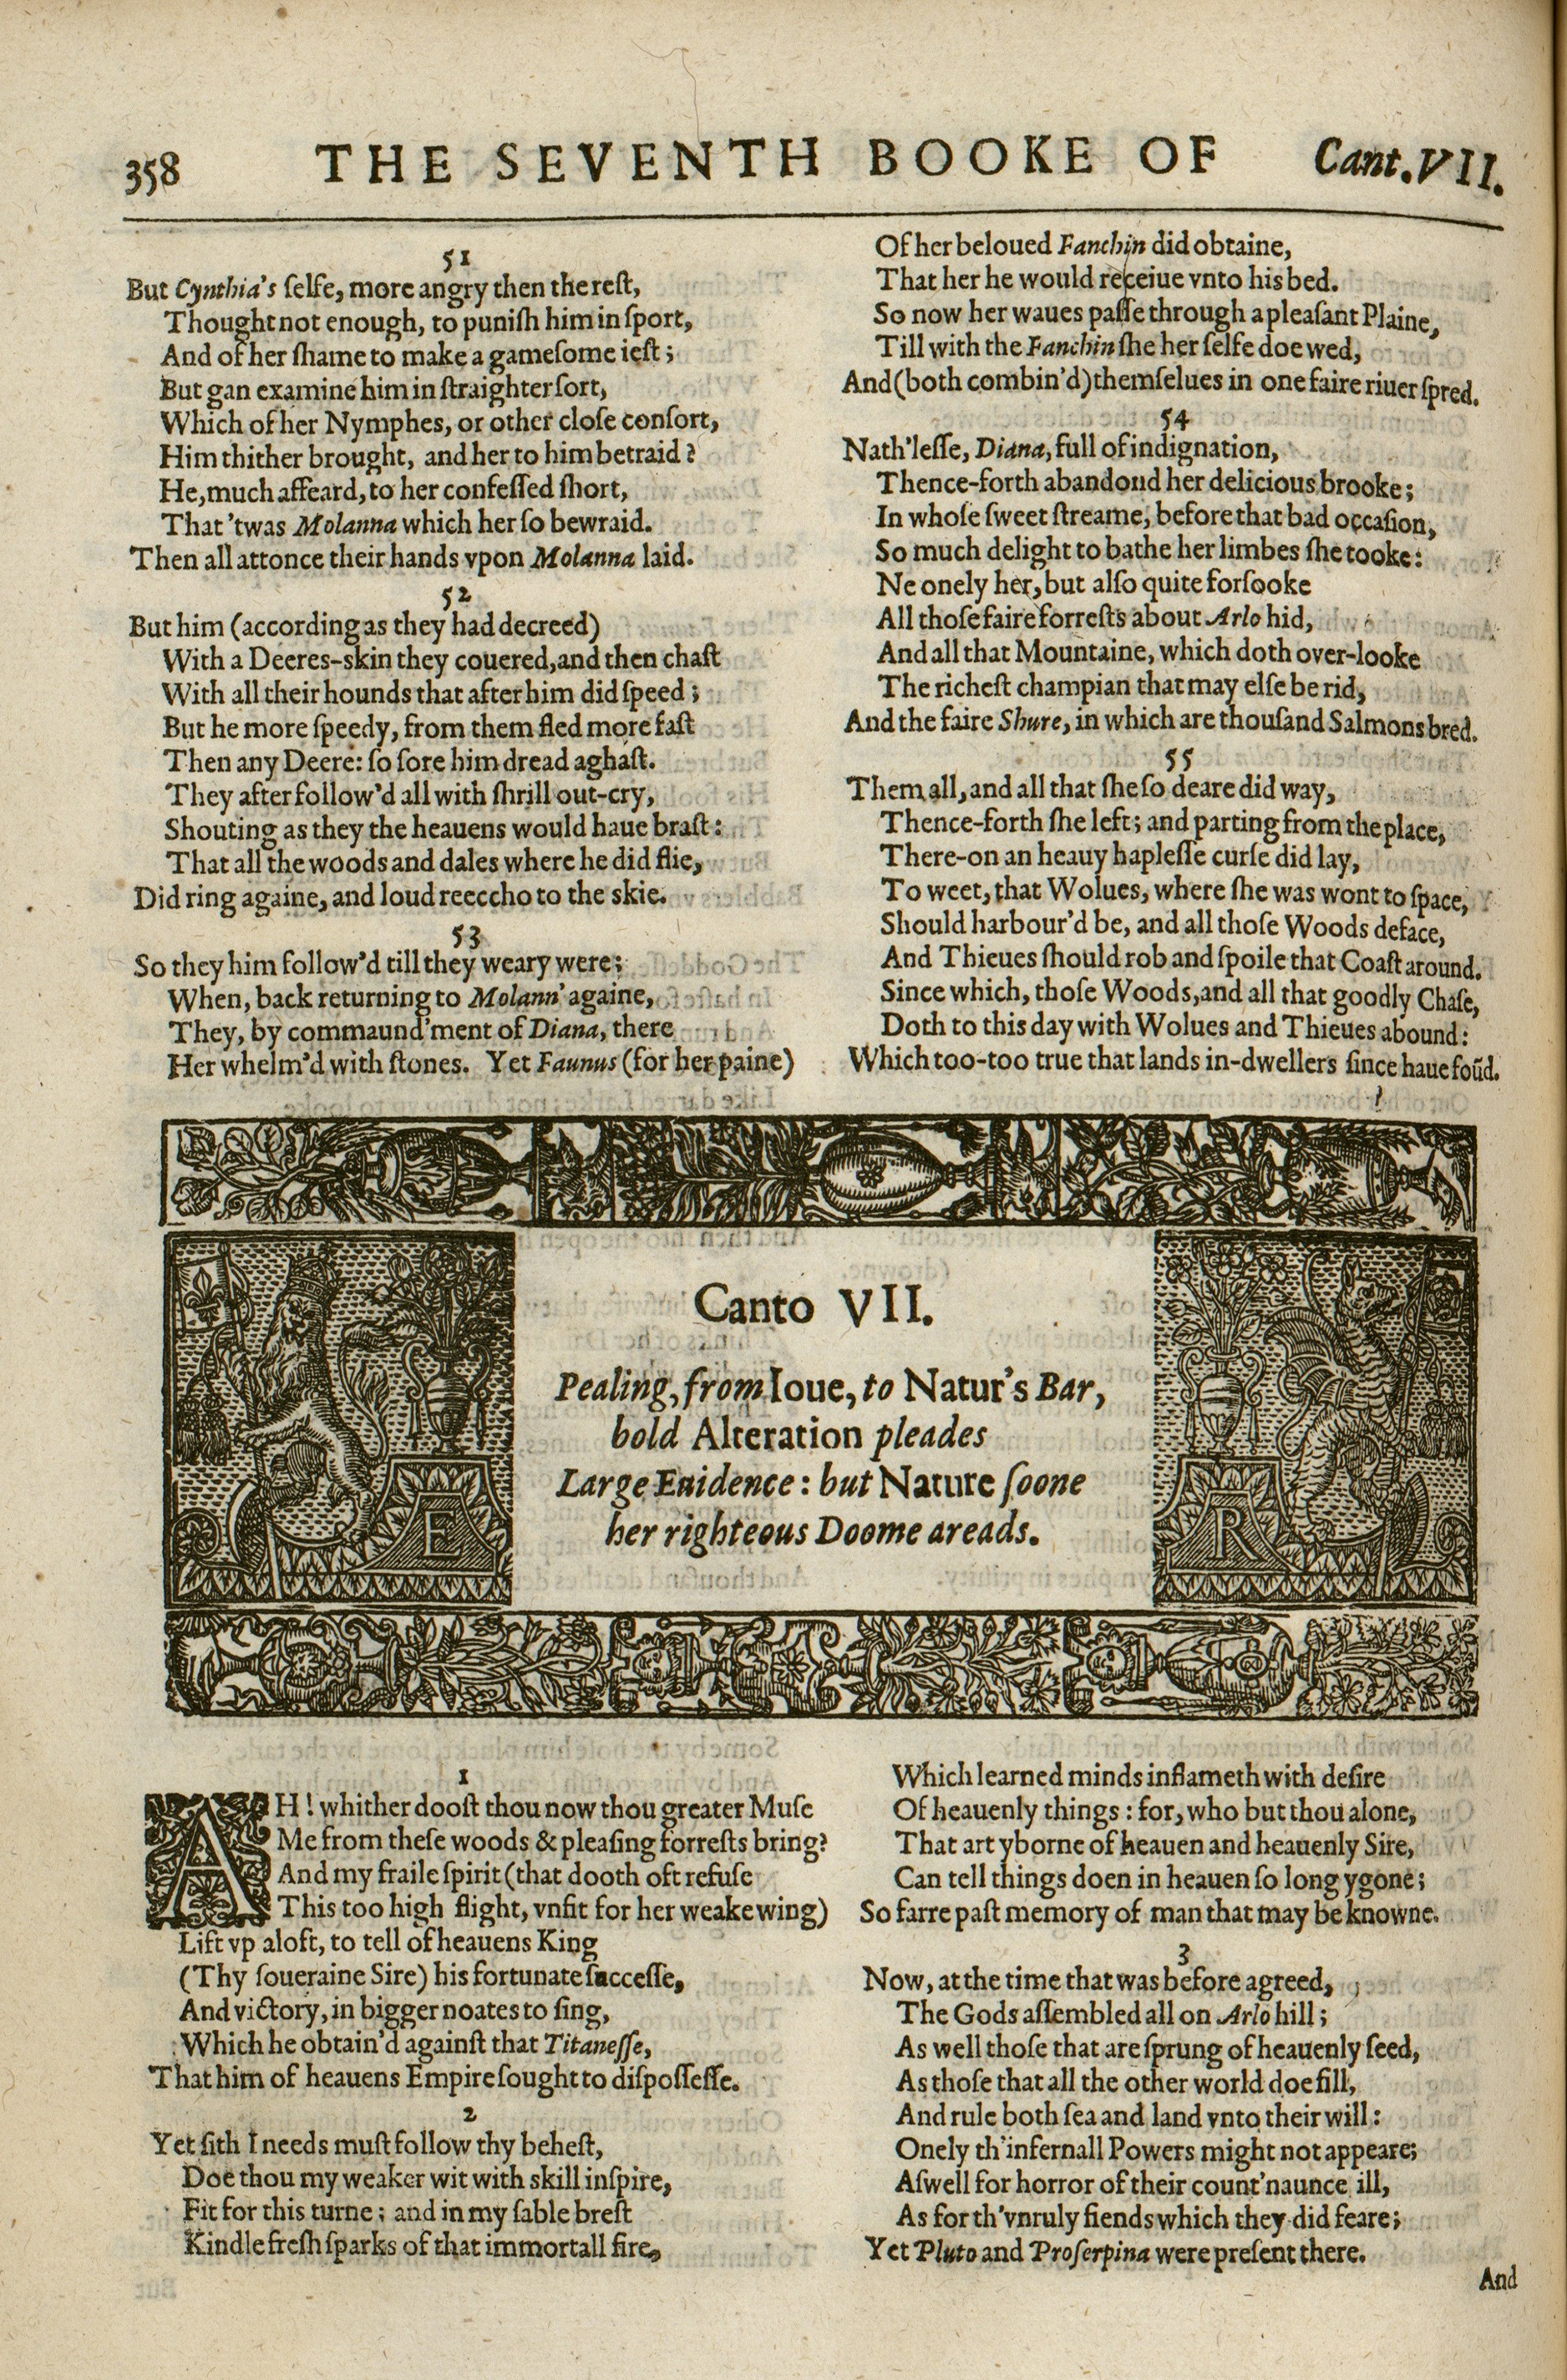 358 THE SEVENTH BOOKE OF Cant. VII.
51
But Cynthia's ſelfe, more angry then the reſt,
Thought not enough, to puniſh him in ſport,
And of her ſhame to make a gameſome ieſt;
But gan examine him in ſtraighter ſort,
Which of her Nymphes, or other cloſe conſort,
Him thither brought, and her to him betraid?
He, much affeard, to her confeſſed ſhort,
That 'twas Molanna which her ſo bewraid.
Then all attonce their hands vpon Molanna laid.
52
But him (according as they had decreed)
With a Deeres-skin they couered, and then chaſt
With all their hounds that after him did ſpeed;
But he more ſpeedy, from them fled more faſt
Then any Deere: ſo ſore him dread aghaſt.
They after follow'd all with ſhrill out-cry,
Shouting as they the heauens would haue braſt:
That all the woods and dales where he did flie,
Did ring againe, and loud reeccho to the skie.
53
So they him follow'd till they weary were;
When, back returning to Molann' againe,
They, by commaund'ment of Diana, there
Her whelm'd with ſtones. Yet Faunus (for her paine)
Of her beloued Fanchin did obtaine,
That her he would receiue vnto his bed.
So now her waues paſſe through a pleaſant Plaine,
Till with the Fanchin ſhe her ſelfe doe wed,
And (both combin'd) themſelues in one faire riuer ſpred.
54
Nath'leſſe, Diana, full of indignation,
Thence-forth abandond her delicious brooke;
In whoſe ſweet ſtreame, before that bad occaſion,
So much delight to bathe her limbes ſhe tooke:
Ne onely her, but alſo quite forſooke
All thoſe faire forreſts about Arlo hid,
And all that Mountaine, which doth over-looke
The richeſt champian that may elſe be rid,
And the faire Shure, in which are thouſand Salmons bred.
55
Them all, and all that ſhe ſo deare did way,
Thence-forth ſhe left; and parting from the place,
There-on an heauy hapleſſe curſe did lay,
To weet, that Wolues, where ſhe was wont to ſpace,
Should harbour'd be, and all thoſe Woods deface,
And Thieues ſhould rob and ſpoile that Coaſt around.
Since which, thoſe Woods, and all that goodly Chaſe,
Doth to this day with Wolues and Thieues abound:
Which too-too true that lands in-dwellers ſince haue foũd.
Canto VII.
Pealing, from Ioue, to Natur's Bar,
bold Alteration pleades
Large Euidence: but Nature ſoone
her righteous Doome areads.
E
R
1
AH! whither dooſt thou now thou greater Muſe
Me from theſe woods & pleaſing forreſts bring?
And my fraile ſpirit (that dooth oft refuſe
This too high flight, vnfit for her weake wing)
Lift vp aloft, to tell of heauens King
(Thy ſoueraine Sire) his fortunate ſucceſſe,
And victory, in bigger noates to ſing,
Which he obtain'd againſt that Titaneſſe,
That him of heauens Empire ſought to diſpoſſeſſe.
2
Yet ſith I needs muſt follow thy beheſt,
Doe thou my weaker wit with skill inſpire,
Fit for this turne; and in my ſable breſt
Kindle freſh ſparks of that immortall fire,
Which learned minds inflameth with deſire
Of heauenly things: for, who but thou alone,
That art yborne of heauen and heauenly Sire,
Can tell things doen in heauen ſo long ygone;
So farre paſt memory of man that may be knowne.
3
Now, at the time that was before agreed,
The Gods aſſembled all on Arlo hill;
As well thoſe that are ſprung of heauenly ſeed,
As thoſe that all the other world doe fill,
And rule both ſea and land vnto their will:
Onely th'infernall Powers might not appeare;
Aſwell for horror of their count'naunce ill,
As for th'vnruly fiends which they did feare;
Yet Pluto and Proſerpina were preſent there.
And